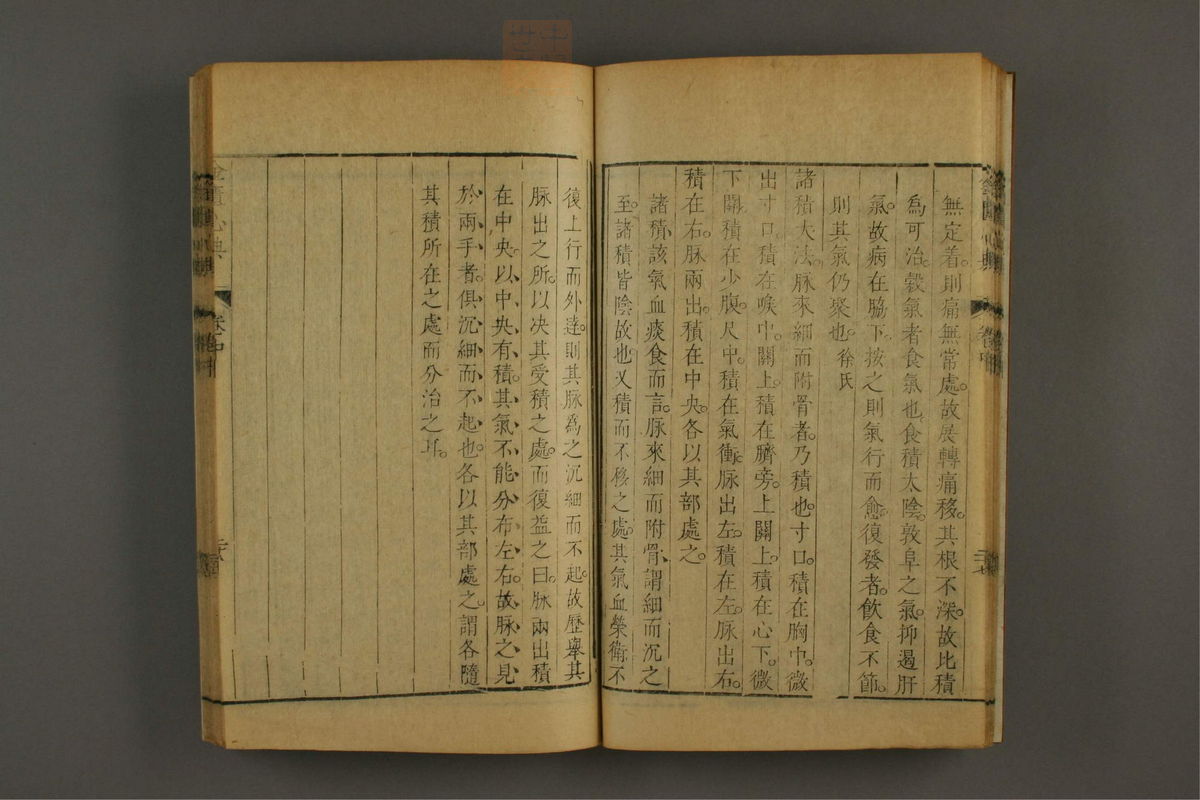 無定着。則痛無常處。故展轉痛移。其根不深。故比積
為可治。穀氣者食氣也。食積太陰。敦阜之氣。抑遏肝
氣。故病在脇下。按之則氣行而愈。復發者。飲食不節。
則其氣仍聚也。徐氏
諸積大法。脉來細而附骨者。乃積也。寸口。積在胸中。微
出寸口。積在喉中。關上。積在臍旁。上關上。積在心下。微
下關。積在少腹。尺中。積在氣衝。脉出左。積在左。脉出右。
積在右。脉兩出。積在中央。各以其部處之。
諸積。該氣血痰食而言。脉來細而附骨。謂細而沉之
至。諸積皆陰故也。又積而不移之處。其氣血榮衛不
復上行而外達。則其脉為之沉細而不起。故歷舉其
脉出之所。以决其受積之處。而復益之曰。脉兩出積
在中央。以中央有積。其氣不能分布左右。故脉之見
於兩手者。俱沉細而不起也。各以其部處之。謂各隨
其積所在之處而分治之耳。
金匱心典
卷中